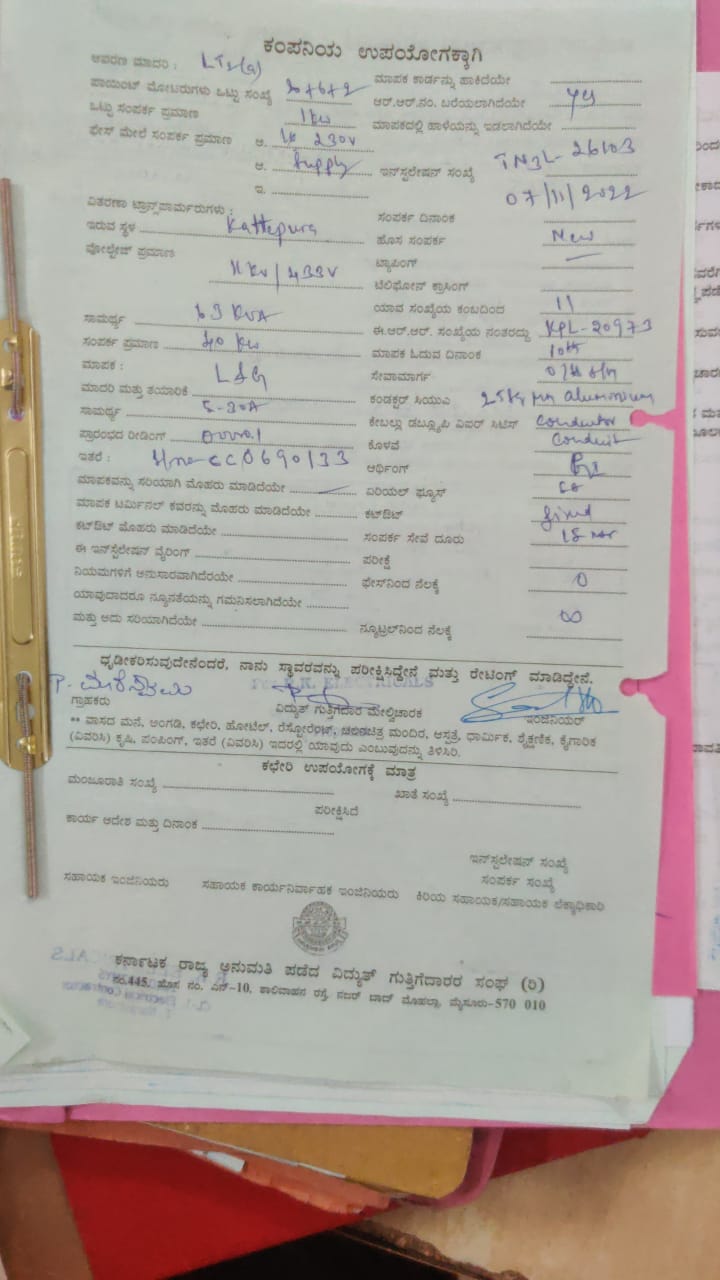 ಕಂಪನಿಯ ಉಪಯೋಗಕ್ಕಾಗಿ
ಆವರಣ ಮಾದರಿ : LT2(a)
ಪಾಯಿಂಟ್ ಮೋಟರುಗಳು ಒಟ್ಟು ಸಂಖ್ಯೆ
ಒಟ್ಟು ಸಂಪರ್ಕ ಪ್ರಮಾಣ 1kw
ಫೇಸ್ ಮೇಲೆ ಸಂಪರ್ಕ ಪ್ರಮಾಣ ಅ. 230V
ಆ. Supply
ಇ.
ವಿತರಣಾ ಟ್ರಾನ್ಸ್‌ಪಾರ್ಮರುಗಳು :
ಇರುವ ಸ್ಥಳ Kattepura
ವೋಲ್ಟೇಜ್ ಪ್ರಮಾಣ 11 KV / 433V
ಸಾಮರ್ಥ್ಯ 63 KVA
ಸಂಪರ್ಕ ಪ್ರಮಾಣ 40 KW
ಮಾಪಕ :
ಮಾದರಿ ಮತ್ತು ತಯಾರಿಕೆ L&G
ಸಾಮರ್ಥ್ಯ 5-30A
ಪ್ರಾರಂಭದ ರೀಡಿಂಗ್
ಇತರೆ : CC0690133
ಮಾಪಕವನ್ನು ಸರಿಯಾಗಿ ಮೊಹರು ಮಾಡಿದೆಯೇ
ಮಾಪಕ ಟರ್ಮಿನಲ್ ಕವರನ್ನು ಮೊಹರು ಮಾಡಿದೆಯೇ
ಕಟ್‌ಔಟ್ ಮೊಹರು ಮಾಡಿದೆಯೇ
ಈ ಇನ್‌ಸ್ಟಲೇಷನ್ ವೈರಿಂಗ್
ನಿಯಮಗಳಿಗೆ ಅನುಸಾರವಾಗಿದೆರಯೇ
ಯಾವುದಾದರೂ ನ್ಯೂನತೆಯನ್ನು ಗಮನಿಸಲಾಗಿದೆಯೇ
ಮತ್ತು ಅದು ಸರಿಯಾಗಿದೆಯೇ
ಮಾಪಕ ಕಾರ್ಡನ್ನು ಹಾಕಿದೆಯೇ
ಆರ್.ಆರ್.ನಂ. ಬರೆಯಲಾಗಿದೆಯೇ yes
ಮಾಪಕದಲ್ಲಿ ಹಾಳೆಯನ್ನು ಇಡಲಾಗಿದೆಯೇ
ಇನ್‌ಸ್ಟಲೇಷನ್ ಸಂಖ್ಯೆ TN3L-26103
07/11/2022
ಸಂಪರ್ಕ ದಿನಾಂಕ
ಹೊಸ ಸಂಪರ್ಕ New
ಟ್ಯಾಪಿಂಗ್
ಟೆಲಿಫೋನ್ ಕ್ರಾಸಿಂಗ್
ಯಾವ ಸಂಖ್ಯೆಯ ಕಂಬದಿಂದ 11
ಈ.ಆರ್.ಆರ್. ಸಂಖ್ಯೆಯ ನಂತರದ್ದು KPL-20973
ಮಾಪಕ ಓದುವ ದಿನಾಂಕ 10th
ಸೇವಾಮಾರ್ಗ
ಕಂಡಕ್ಟರ್ ಸಿಯುಎ aluminium
ಕೇಬಲ್ಲು ಡಬ್ಲ್ಯೂಪಿ ವಿಐರ್ ಸಿಟಿಸ್ Conductor
ಕೊಳವೆ Conduit
ಆರ್ಥಿಂಗ್
ಏರಿಯಲ್ ಫ್ಯೂಸ್
ಕಟ್‌ಔಟ್ fixed
ಸಂಪರ್ಕ ಸೇವೆ ದೂರು 15 mtr
ಪರೀಕ್ಷೆ
ಫೇಸ್‌ನಿಂದ ನೆಲಕ್ಕೆ 0
ನ್ಯೂಟ್ರಲ್‌ನಿಂದ ನೆಲಕ್ಕೆ ∞
ಧೃಡೀಕರಿಸುವುದೇನೆಂದರೆ, ನಾನು ಸ್ಥಾವರವನ್ನು ಪರೀಕ್ಷಿಸಿದ್ದೇನೆ ಮತ್ತು ರೇಟಿಂಗ್ ಮಾಡಿದ್ದೇನೆ.
ಗ್ರಾಹಕರು ವಿದ್ಯುತ್ ಗುತ್ತಿಗೆದಾರ ಮೇಲ್ವಿಚಾರಕ ಇಂಜಿನಿಯರ್
** ವಾಸದ ಮನೆ, ಅಂಗಡಿ, ಕಛೇರಿ, ಹೋಟೆಲ್, ರೆಸ್ಟೋರೆಂಟ್, ಚಲನಚಿತ್ರ ಮಂದಿರ, ಆಸ್ಪತ್ರೆ, ಧಾರ್ಮಿಕ, ಶೈಕ್ಷಣಿಕ, ಕೈಗಾರಿಕ
(ವಿವರಿಸಿ) ಕೃಷಿ, ಪಂಪಿಂಗ್, ಇತರೆ (ವಿವರಿಸಿ) ಇದರಲ್ಲಿ ಯಾವುದು ಎಂಬುವುದನ್ನು ತಿಳಿಸಿರಿ.
ಕಛೇರಿ ಉಪಯೋಗಕ್ಕೆ ಮಾತ್ರ
ಮಂಜೂರಾತಿ ಸಂಖ್ಯೆ ಖಾತೆ ಸಂಖ್ಯೆ
ಪರೀಕ್ಷಿಸಿದೆ
ಕಾರ್ಯ ಆದೇಶ ಮತ್ತು ದಿನಾಂಕ
ಇನ್‌ಸ್ಟಲೇಷನ್ ಸಂಖ್ಯೆ
ಸಂಪರ್ಕ ಸಂಖ್ಯೆ
ಸಹಾಯಕ ಇಂಜಿನಿಯರು ಸಹಾಯಕ ಕಾರ್ಯನಿರ್ವಾಹಕ ಇಂಜಿನಿಯರು ಕಿರಿಯ ಸಹಾಯಕ/ಸಹಾಯಕ ಲೆಕ್ಕಾಧಿಕಾರಿ
ಕರ್ನಾಟಕ ರಾಜ್ಯ ಅನುಮತಿ ಪಡೆದ ವಿದ್ಯುತ್ ಗುತ್ತಿಗೆದಾರರ ಸಂಘ (ರಿ)
ನಂ.445, ಹೊಸ ನಂ. ಎನ್-10, ಶಾಲಿವಾಹನ ರಸ್ತೆ, ನಜರ್ ಬಾದ್ ಮೊಹಲ್ಲಾ, ಮೈಸೂರು-570 010